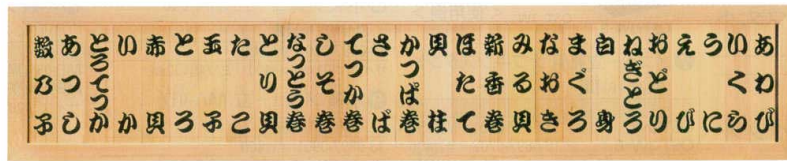 あわび
いくら
うに
えび
おどり
ねぎとろ
白身
まぐろ
なおき
みる貝
新香巻
ほたて
貝柱
かっぱ巻
さば
てつか巻
しそ巻
なつとう巻
とり貝
たこ
玉子
とろ
赤貝
いか
とろてつか
あつし
数乃子